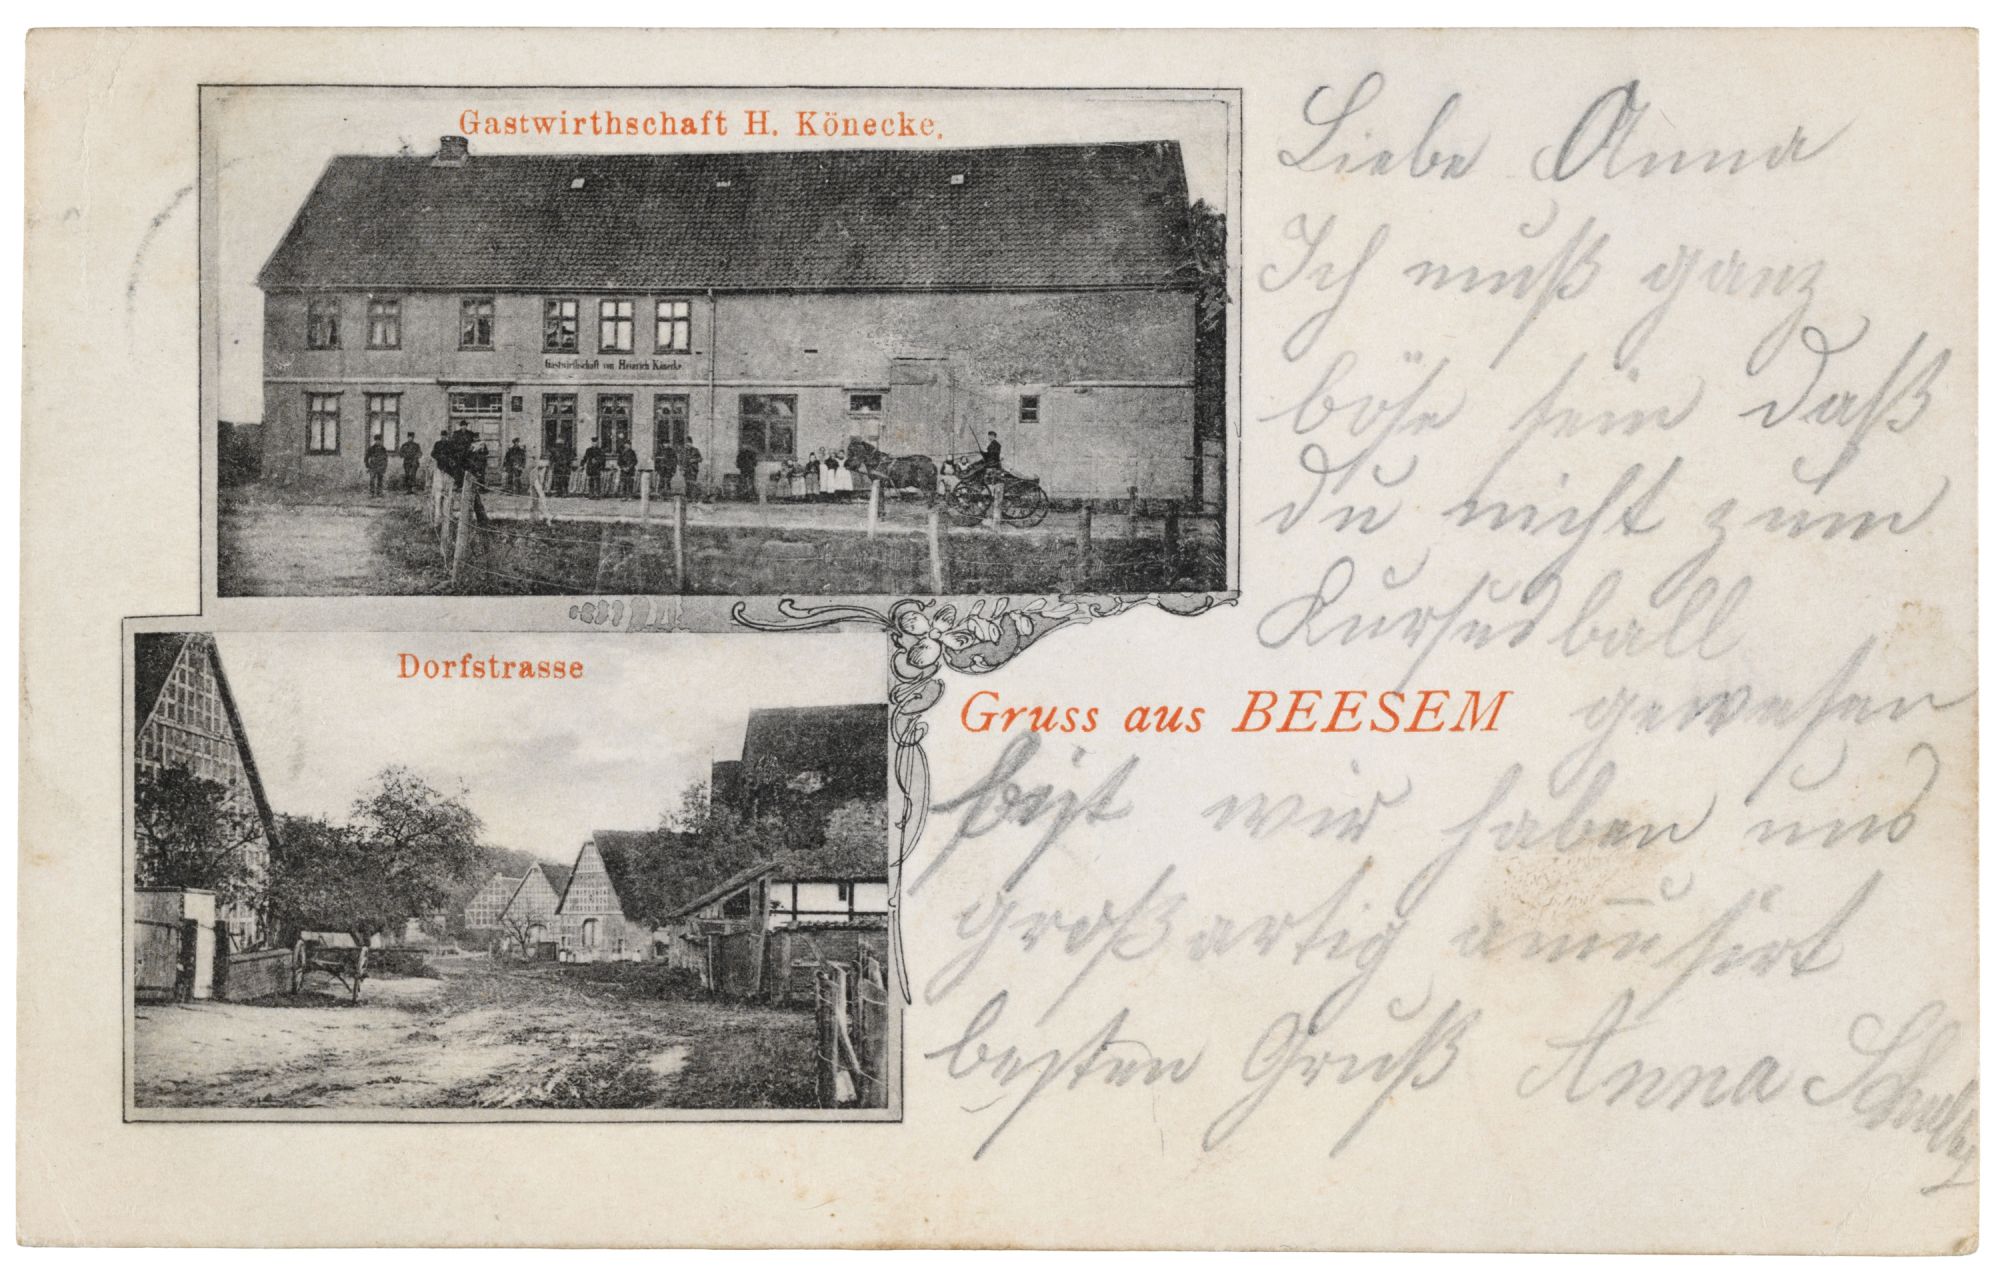 Gastwirthschaft H. Könecke.
Gastwirthschaft von Heinrich Könecke.
Dorfstrasse
Gruss aus BEESEM
Liebe Anna
Ich muß ganz
böse sein daß
du nicht zum
Kursusball
gewesen
bist wir haben uns
großartig amüsirt
besten Gruß Anna